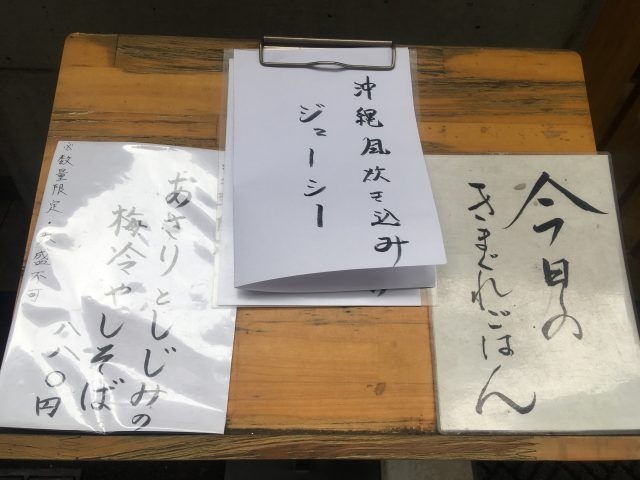 今日の
きまぐれごはん
沖縄風炊き込み
ジューシー
あさりとしじみの
梅冷やしそば
八八〇円
※数量限定・大盛不可